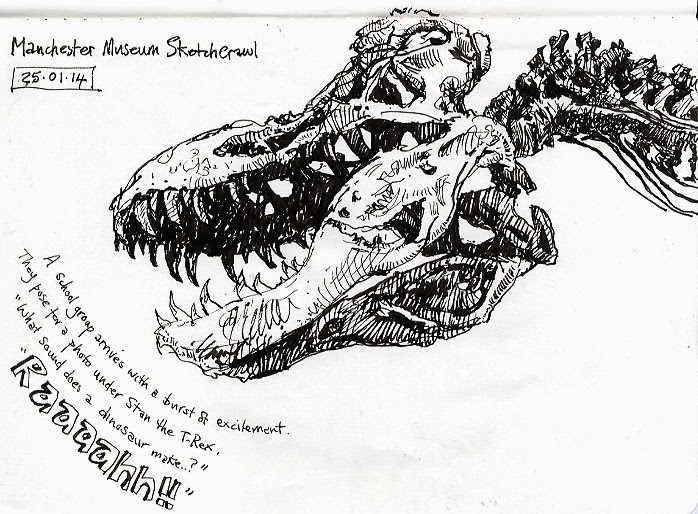 Manchester Museum Sketchcrawl
25.01.14
A school group arrives with a burst of excitement.
They pose for a photo under Stan the T-Rex.
"What sound does a dinosaur make...?"
"Raaaahh!!"